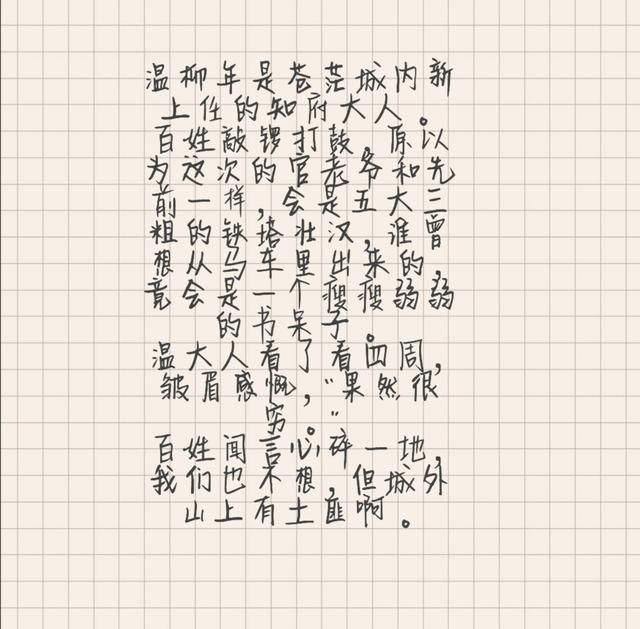 温柳年是苍茫城内新
上任的知府大人。
百姓敲锣打鼓,原以
为这次的官老爷和先
前一样,会是五大三
粗的铁塔壮汉,谁曾
想从马车里出来的,
竟会是一个瘦瘦弱弱
的书呆子。
温大人看了看四周,
皱眉感慨,“果然很
穷。”
百姓闻言心碎一地,
我们也不想,但城外
山上有土匪啊。